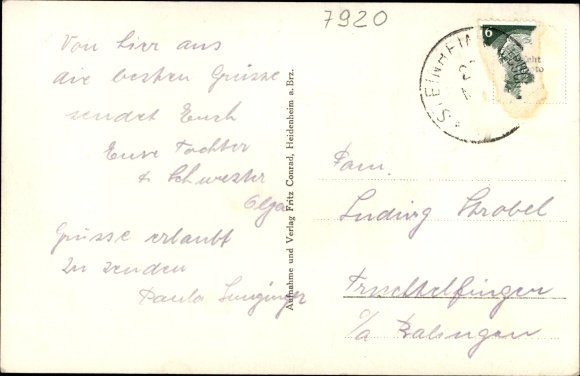 7920
Von hier aus
die besten Grüsse
sendet Euch
Eure Tochter
& Schwester
Olga
Grüsse erlaubt
zu senden
Paula
Aufnahme und Verlag Fritz Conrad, Heidenheim a. Brz.
6
STEINHEIM
Fam.
Ludwig Strobel
Truchtelfingen
b/a Balingen